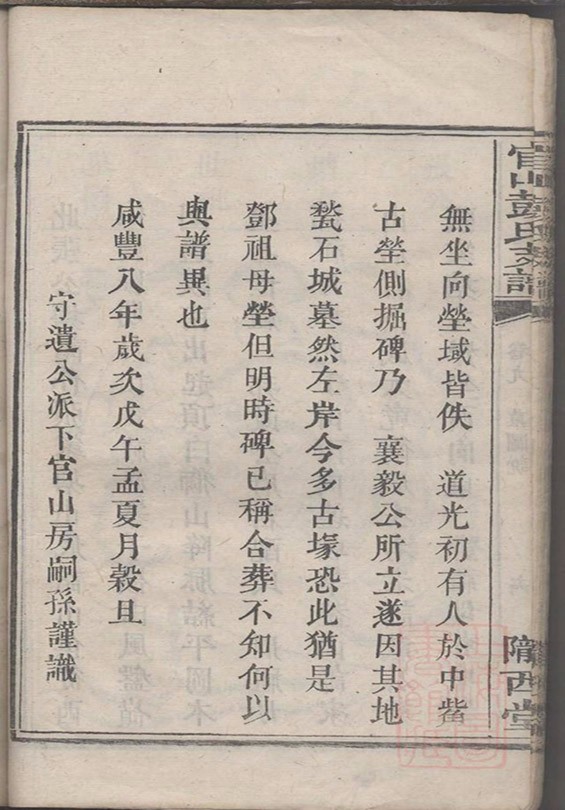 官山彭氏支譜
隋西堂
無坐向塋域皆佚　道光初有人於中嘴
古塋側掘碑乃　襄毅公所立遂因其地
甃石城墓然左岸今多古塚恐此猶是
鄧祖母塋但明時碑已稱合葬不知何以
與譜異也
咸豐八年歲次戊午孟夏月穀旦
守遺公派下官山房嗣孫謹識